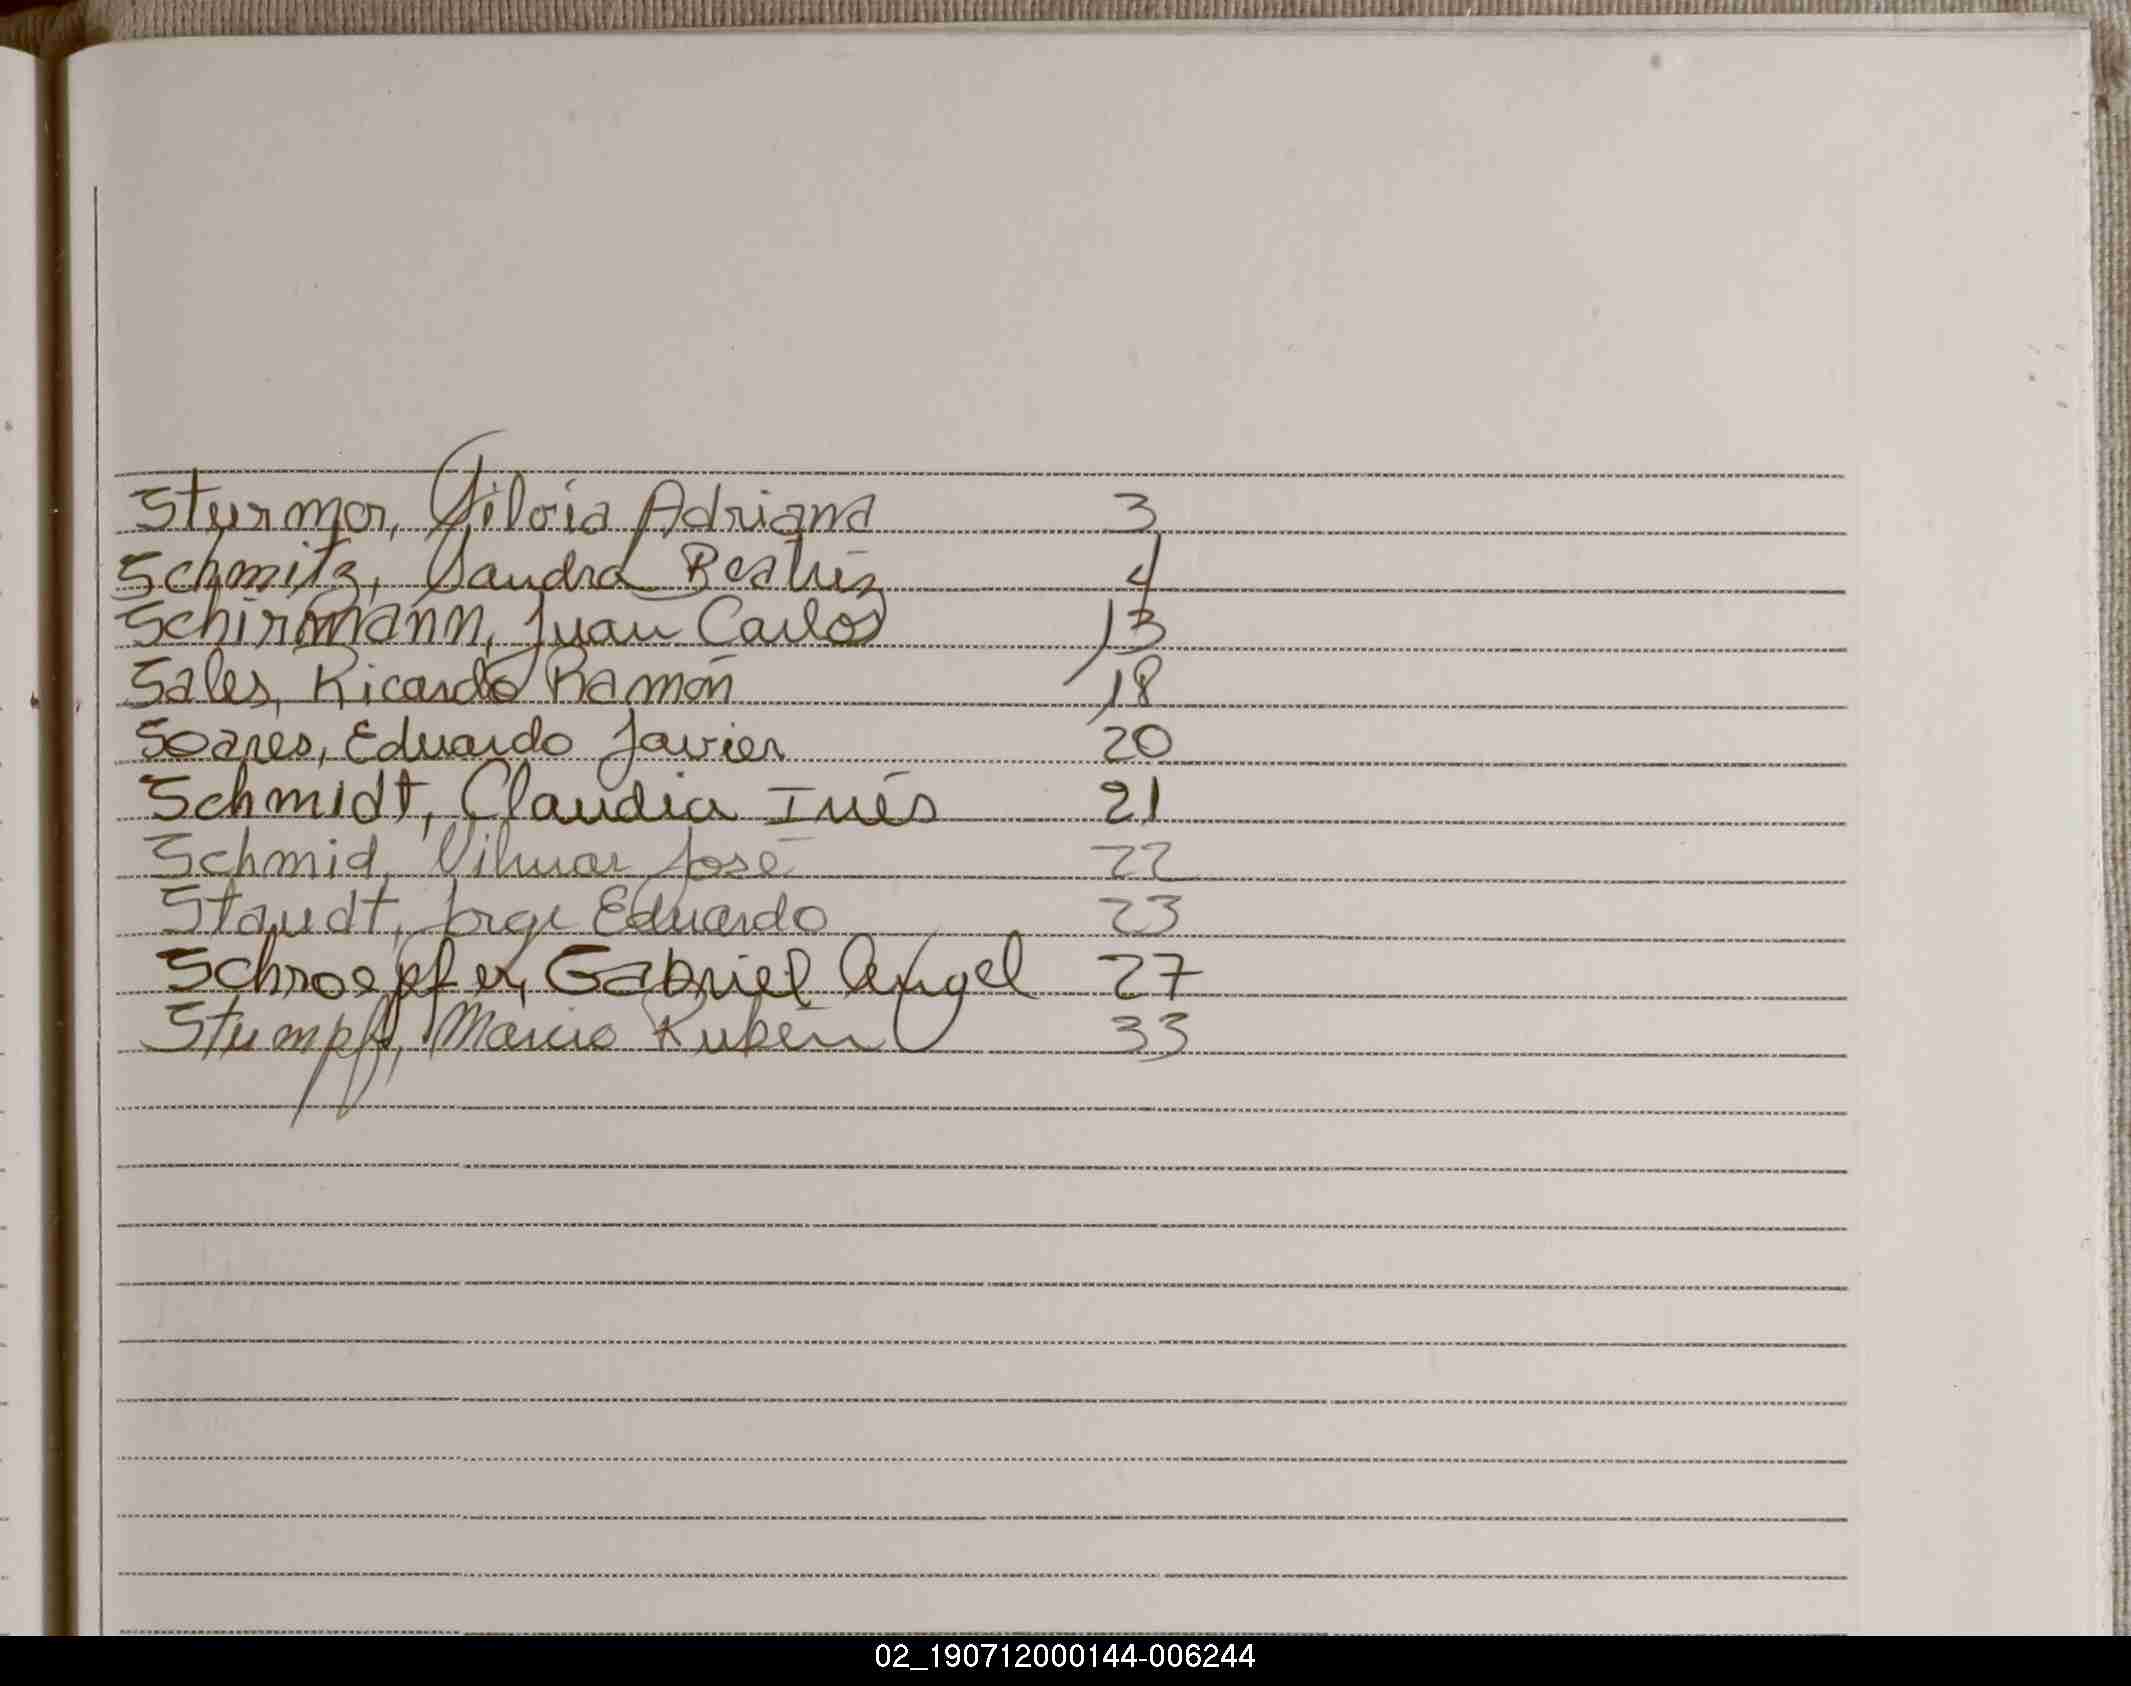 Sturmer, Silvia Adriana 3
Schmitz, Sandra Beatriz 4
Schirmann, Juan Carlos 13
Sales, Ricardo Ramón 18
Soares, Eduardo Javier 20
Schmidt, Claudia Inés 21
Schmid, Vilmar José 22
Staudt, Jorge Eduardo 23
Schroepfer, Gabriel Angel 27
Stumpf, Marcio Rubén 33
02_190712000144-006244